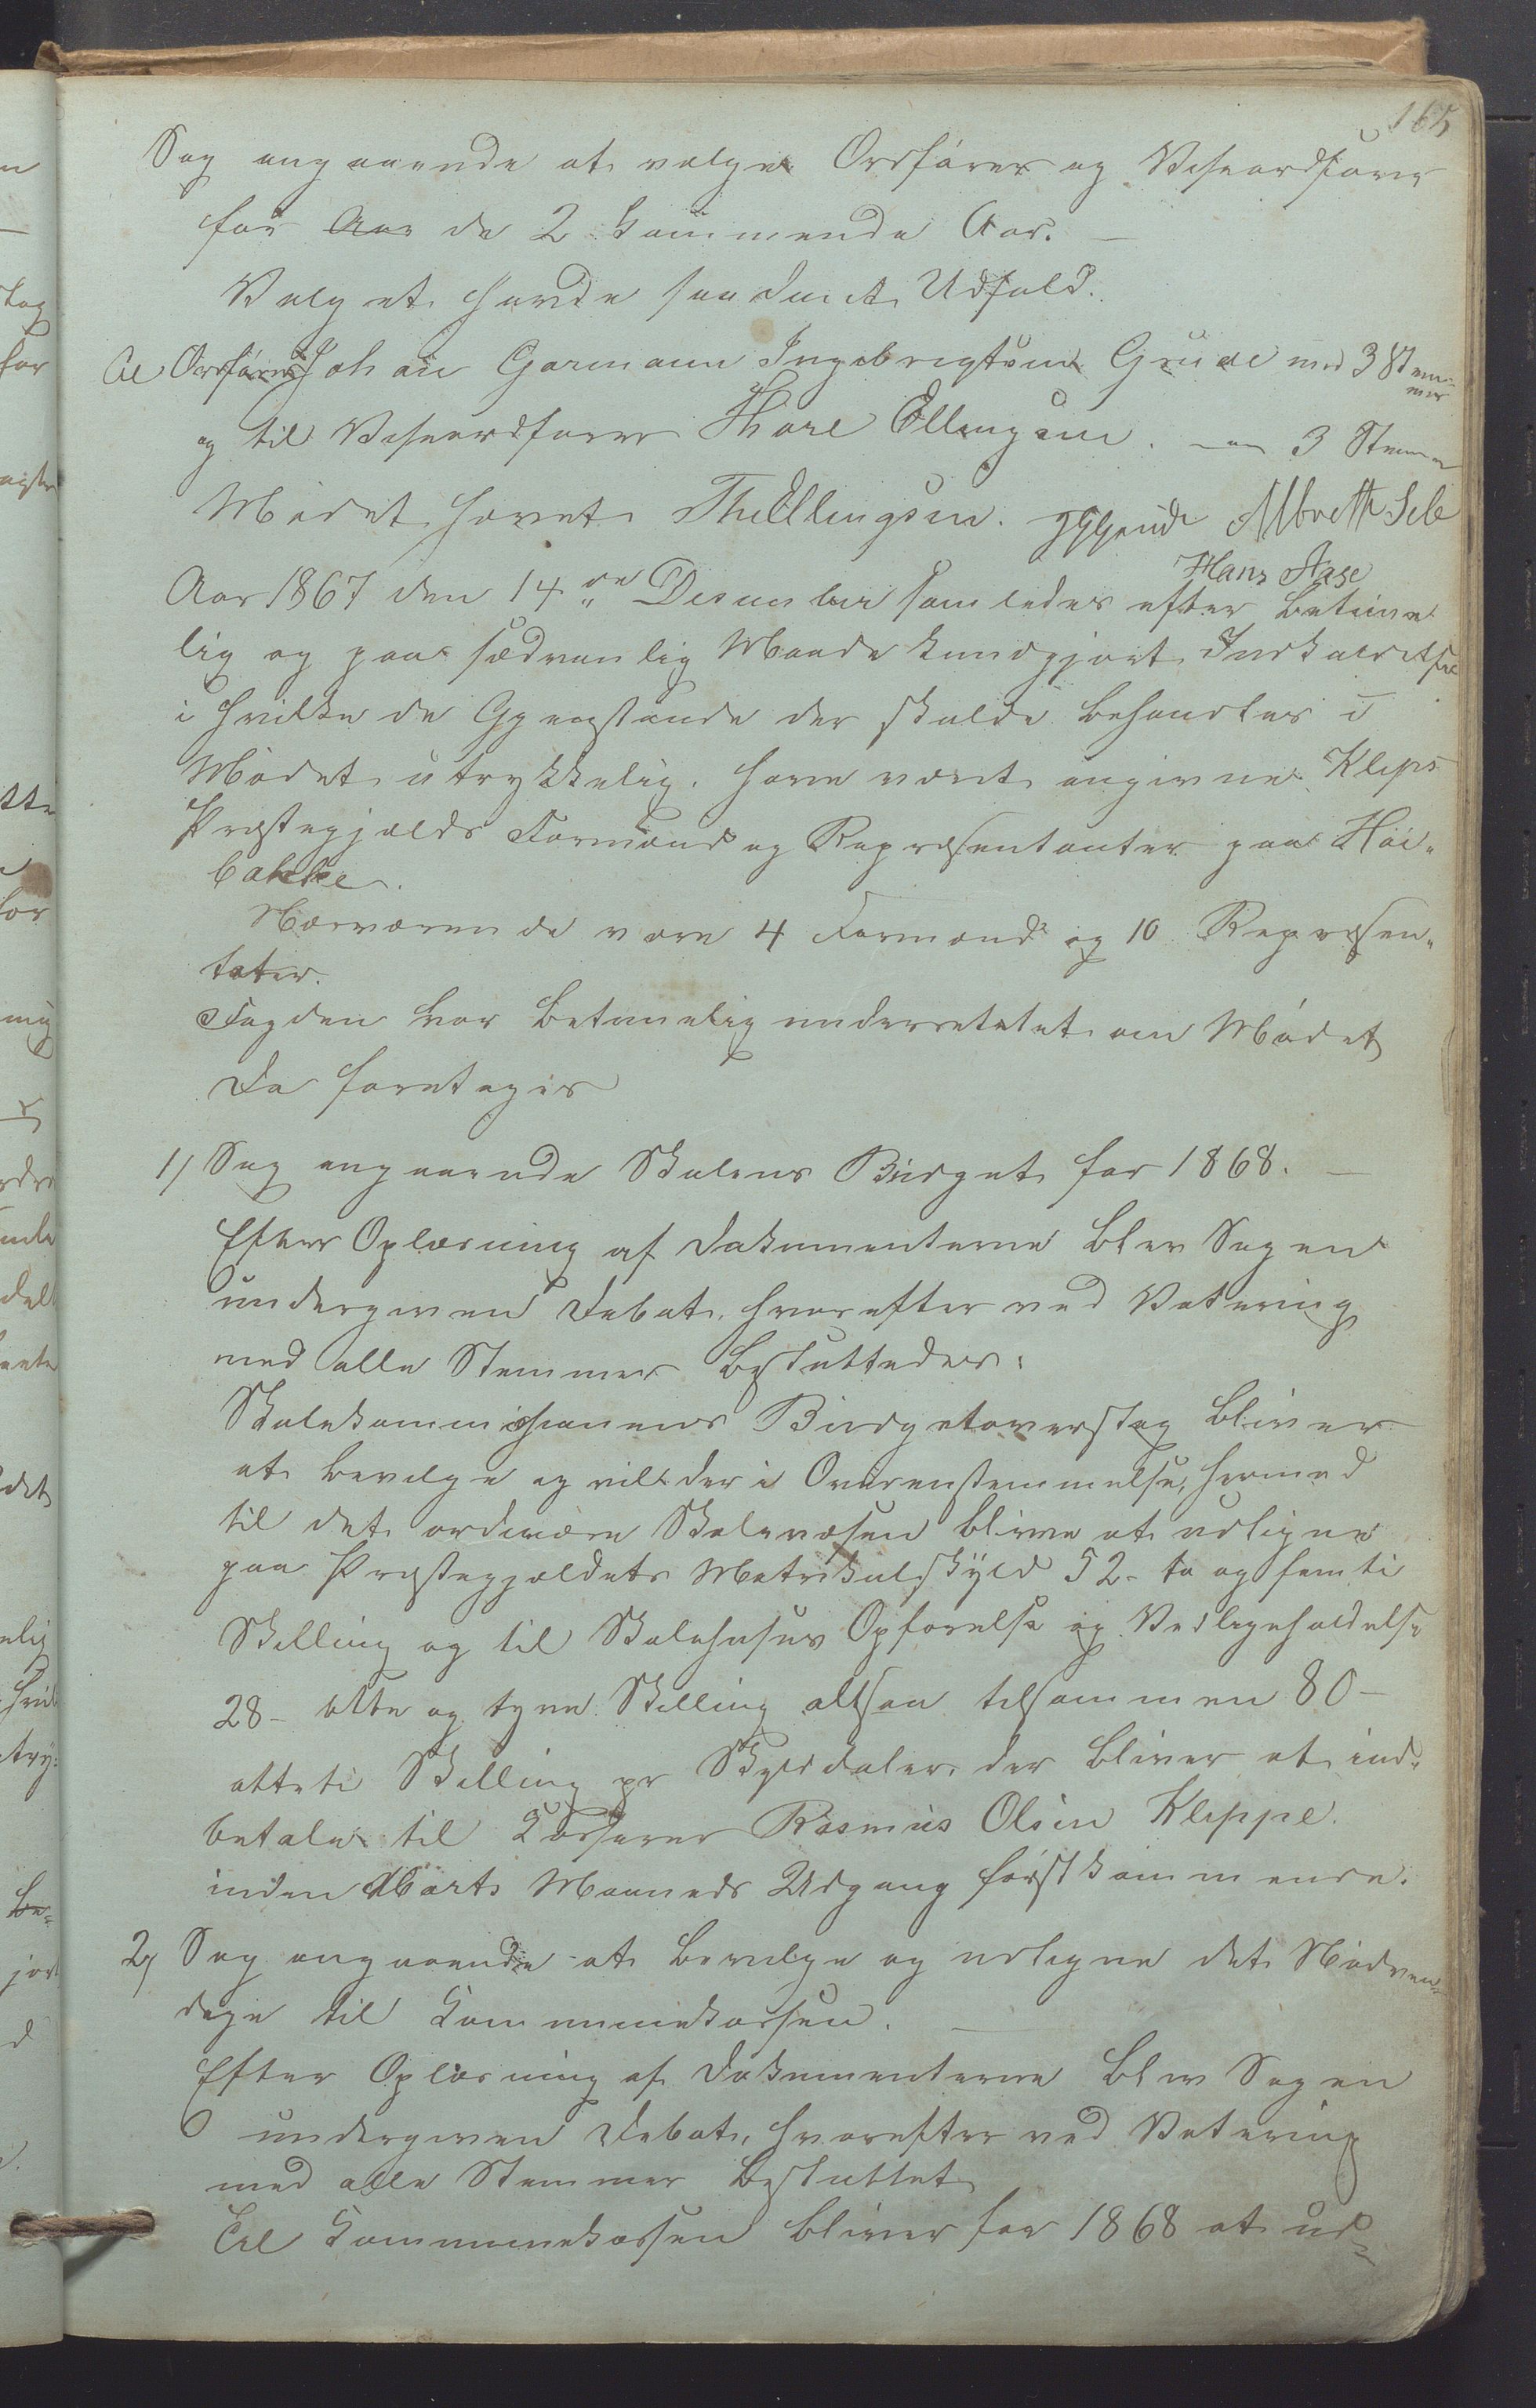 165
Sag angaaende at valge Ordfører og Viseordfører
for Aar de 2 kommende Aar. —
Valget havde saadant Udfald.
til Ordfører Johan Garmann Ingebrigtsen Grude med 3 Stem-
mer
og til Viseordfører Thore Ellingsen. — 3 Stemmer
Mødet hævet. ThEllingsen. Albreth Sele
Hans Aase
Aar 1867 den 14de Desember samledes efter betime
lig og paa sædvanlig Maade kundgjort Indkaldelse
i hvilke de Gjenstande der skulde behandles i
Mødet utrykkelig have været angivne Kleps
Præstegjælds Formænd og Repræsentanter paa Høi-
bakke.
Nærværende vare 4 Formænd og 10 Repræsen-
tater.
Fogden var betimelig underrettet om Mødet
Da foretoges
1) Sag angaaende Skolens Budget for 1868. —
Efter Oplæsning af Dokumenterne blev Sagen
undergiven Debat, hvorefter ved Votering
med alle Stemmer besluttedes:
Skolekommisionens Budgetoverslag bliver
at bevilge og vill der i Overenstemmelse, hermed
til det ordinære Skolevæsen blive at udligne
paa Præstegjældets Matrikulskyld 52- to og femti
Skilling og til Skolehuses Opførelse og Vedligeholdelse
28- otte og tyve Skilling altsaa tilsammen 80-
otteti Skilling pr Skylddaler, der bliver at ind-
betale til Kasserer Rasmus Olsen Kleppe.
inden Marts Maaneds Udgang førstkommende.
2) Sag angaaende at bevilge og udligne det Nødven-
dige til Kommunekassen. —
Efter Oplæsning af Dokumenterne blev Sagen
undergiven Debat, hvorefter ved Votering
med alle Stemmer besluttet
Til Kommunekassen bliver for 1868 at ud-